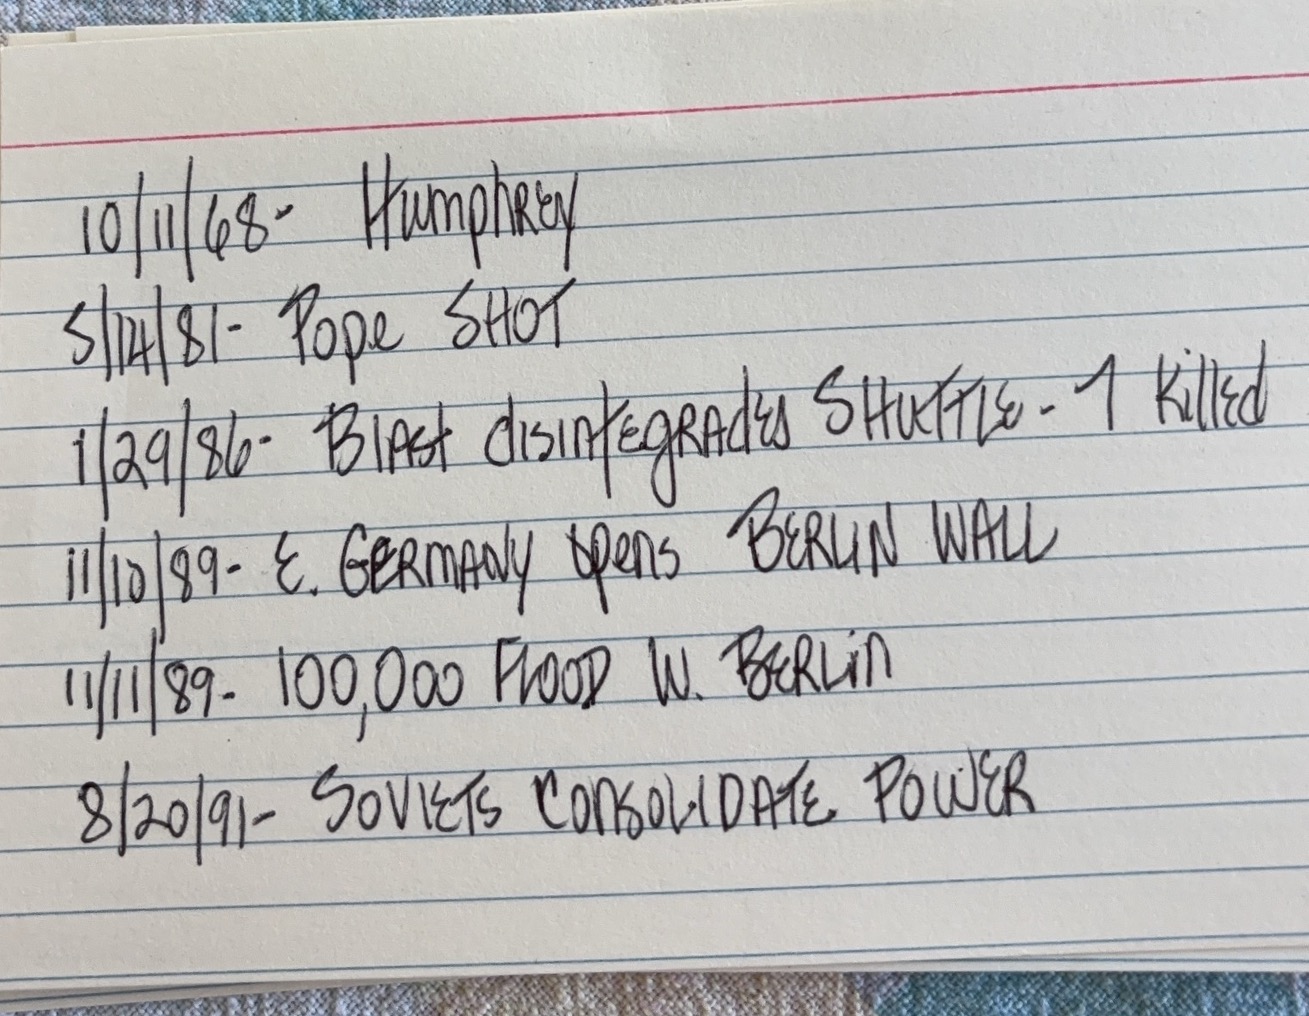 10/11/68- Humphrey
5/14/81- Pope SHOT
1/29/86- Blast disintegrades SHUTTLE - 7 Killed
11/10/89- E. GERMANY opens BERLIN WALL
11/11/89- 100,000 FLOOD W. BERLin
8/20/91- SOVIETS CONSOLIDATE POWER